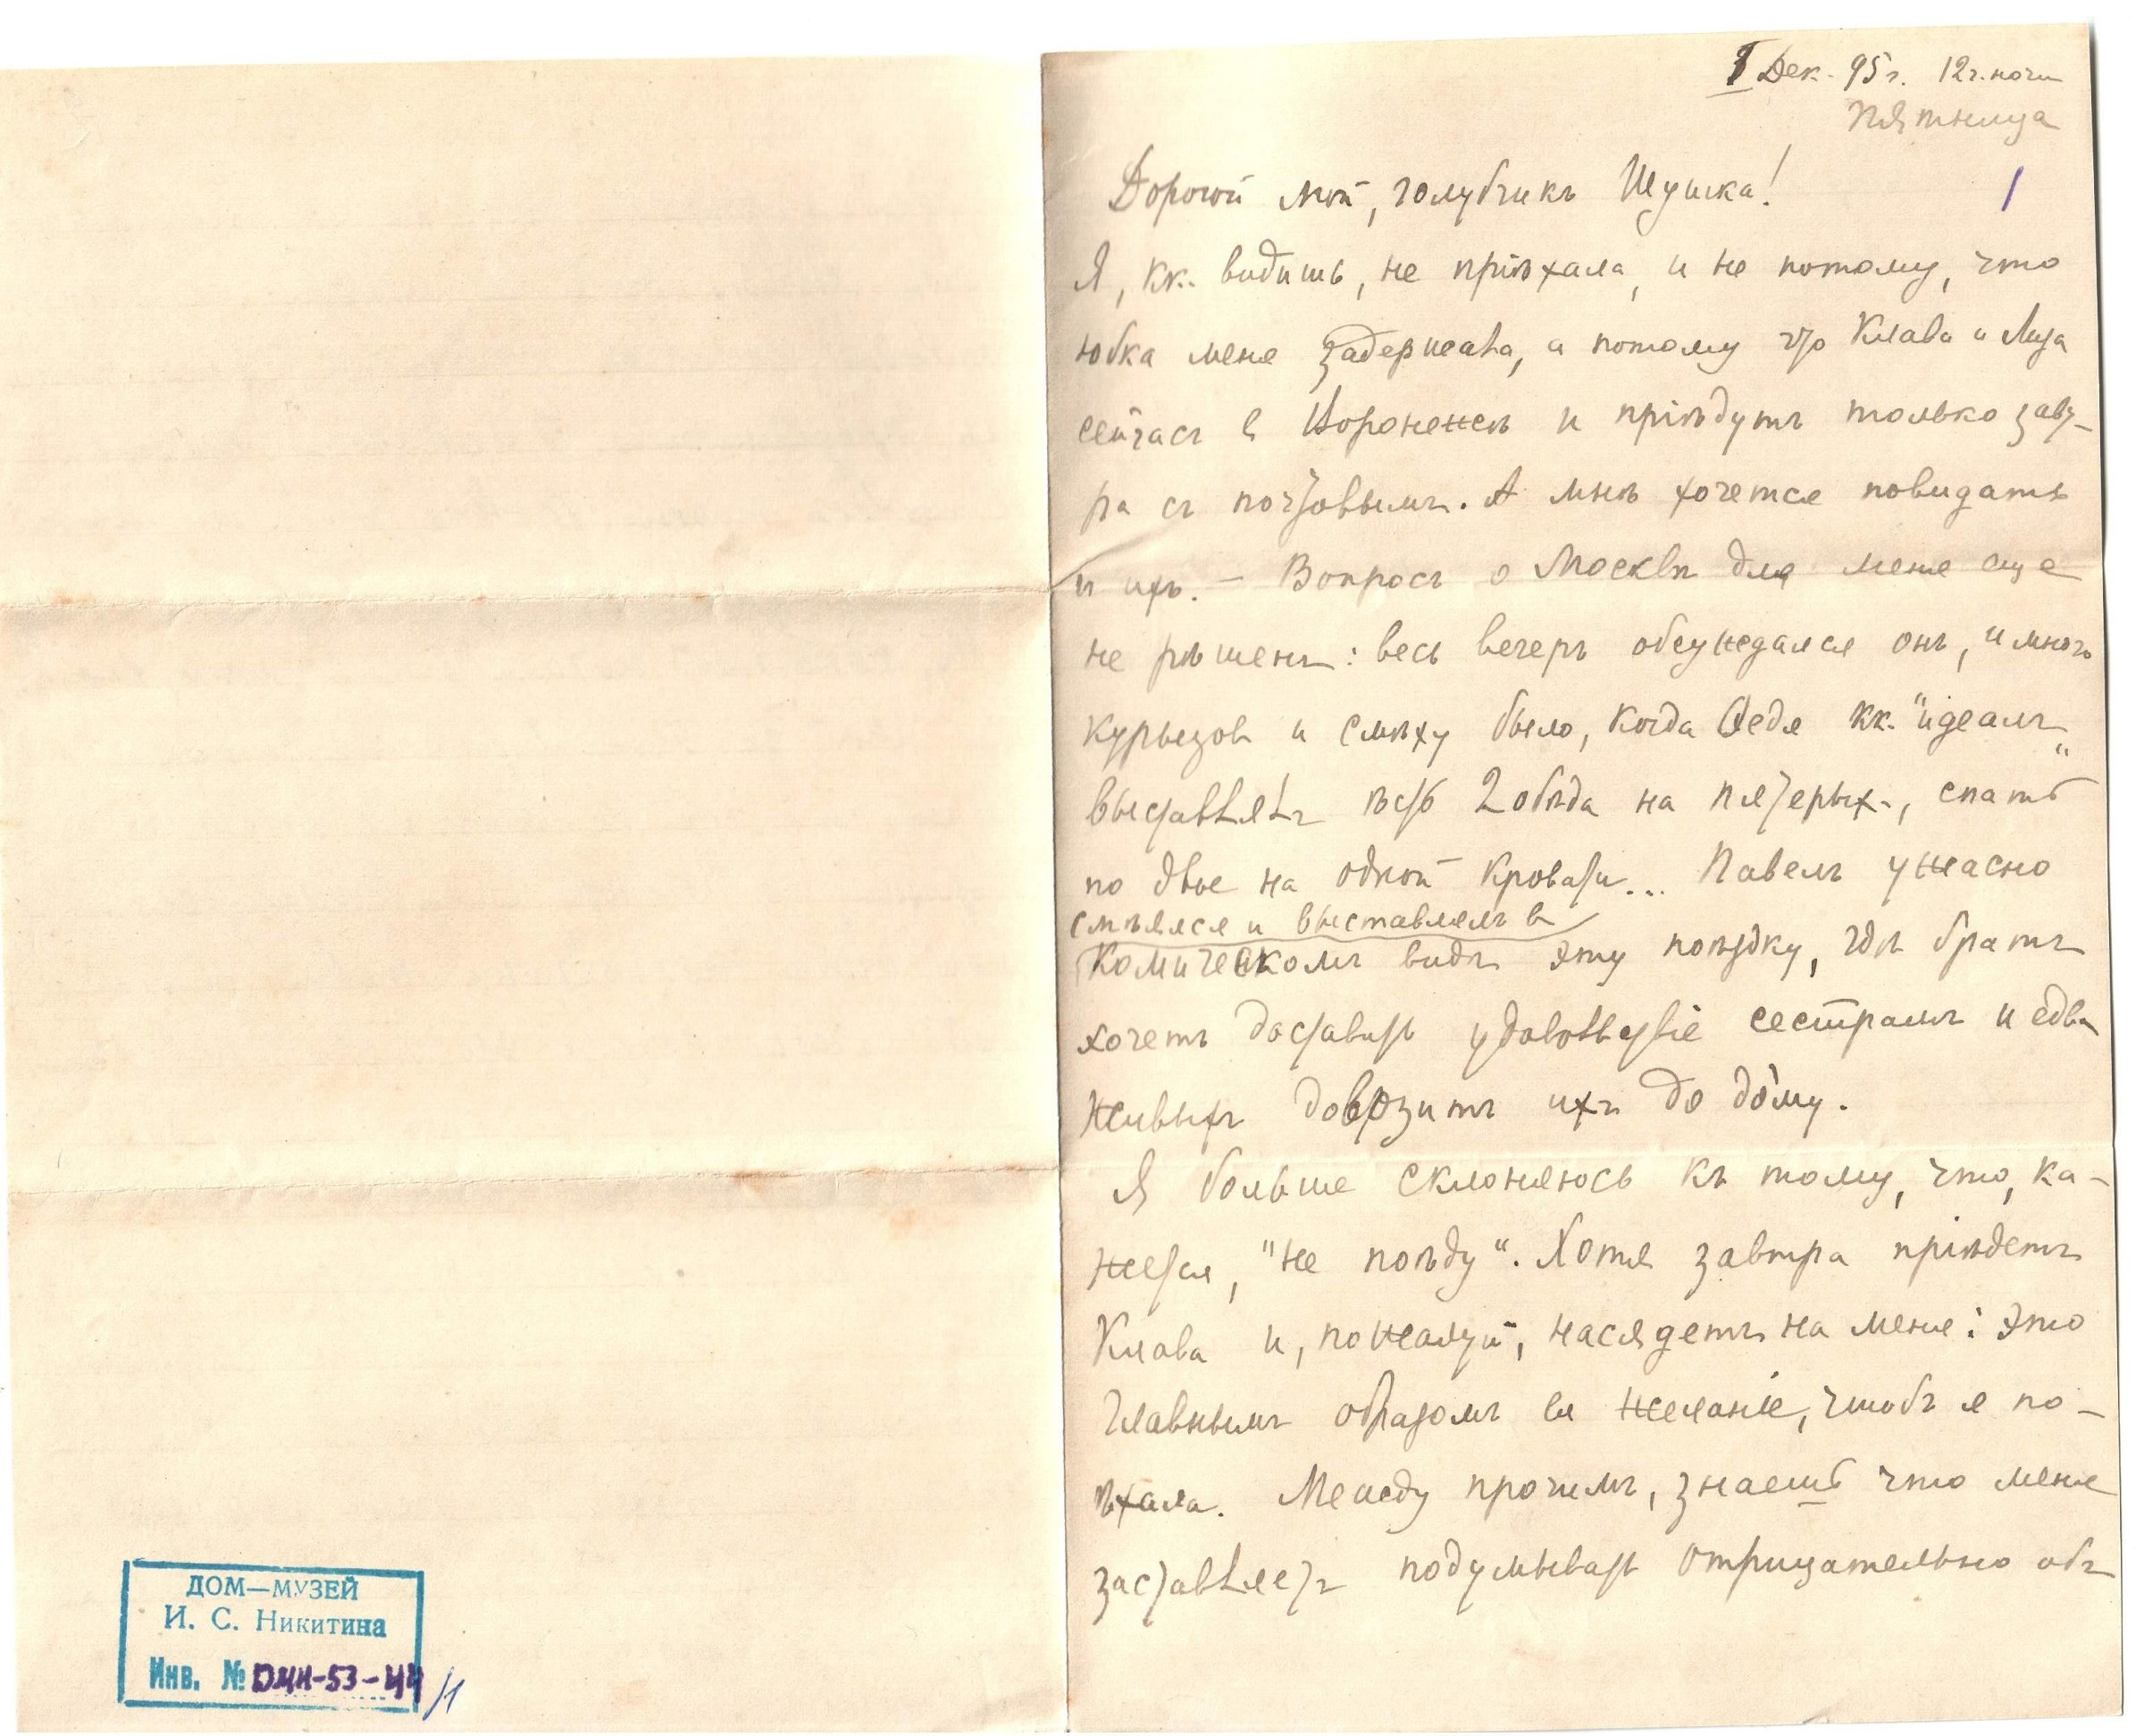 Дек. 95 г. 12 ч. ночи
Пятница
1
Дорогой мой, голубчикъ Шушка!
Я, кк. видишь, не пріѣхала, и не потому, что
юбка меня задержала, а потому что Клава и Лиза
сейчасъ в Воронежѣ и пріѣдутъ только завт-
ра съ почтовымъ. А мнѣ хочется повидать
и ихъ. – Вопросъ о Москвѣ для меня еще
не рѣшенъ: весь вечеръ обсуждался онъ, и много
курьезовъ и смѣху было, когда Федя кк. "идеалъ"
выставлялъ ѣсть 2 обѣда на пятерых, спать
по двое на одной кровати... Павелъ ужасно
смѣялся и выставлялъ в
комическомъ видѣ эту поѣздку, гдѣ братъ
хочетъ доставить удовольствіе сестрамъ и едва
живыхъ довозитъ ихъ до дому.
Я больше склоняюсь къ тому, что, ка-
жется, "не поѣду". Хотя завтра пріѣдетъ
Клава и, пожалуй, насядетъ на меня: это
главнымъ образомъ ея желаніе, чтобъ я по-
ѣхала. Между прочимъ, знаешь что меня
заставляетъ подумывать отрицательно объ
ДОМ—МУЗЕЙ
И. С. Никитина
Инв. № ДМН-53-44/1